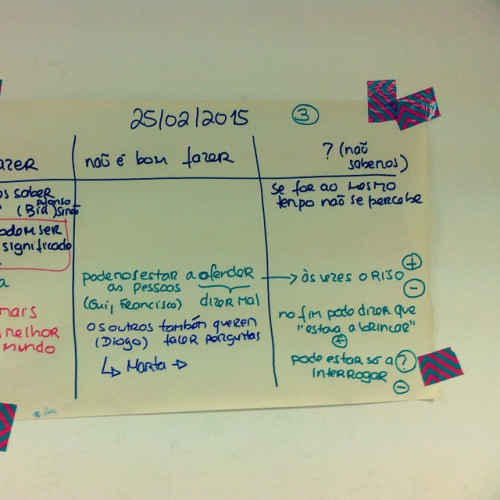 25/02/2015 3
azer
não é bom fazer
? (não
sabemos)
os saber
(Bia, Afonso) sinão
podem ser
significado
a
mais
melhor
mundo
podemos estar a ofender
as pessoas
(Gui, Francisco) dizer mal
os outros também querem
(Diogo) fazer perguntas
Marta
se for ao mesmo
tempo não se percebe
às vezes o riso +
no fim pode dizer que
"estava a brincar"
+
pode estar só a ?
interrogar
-